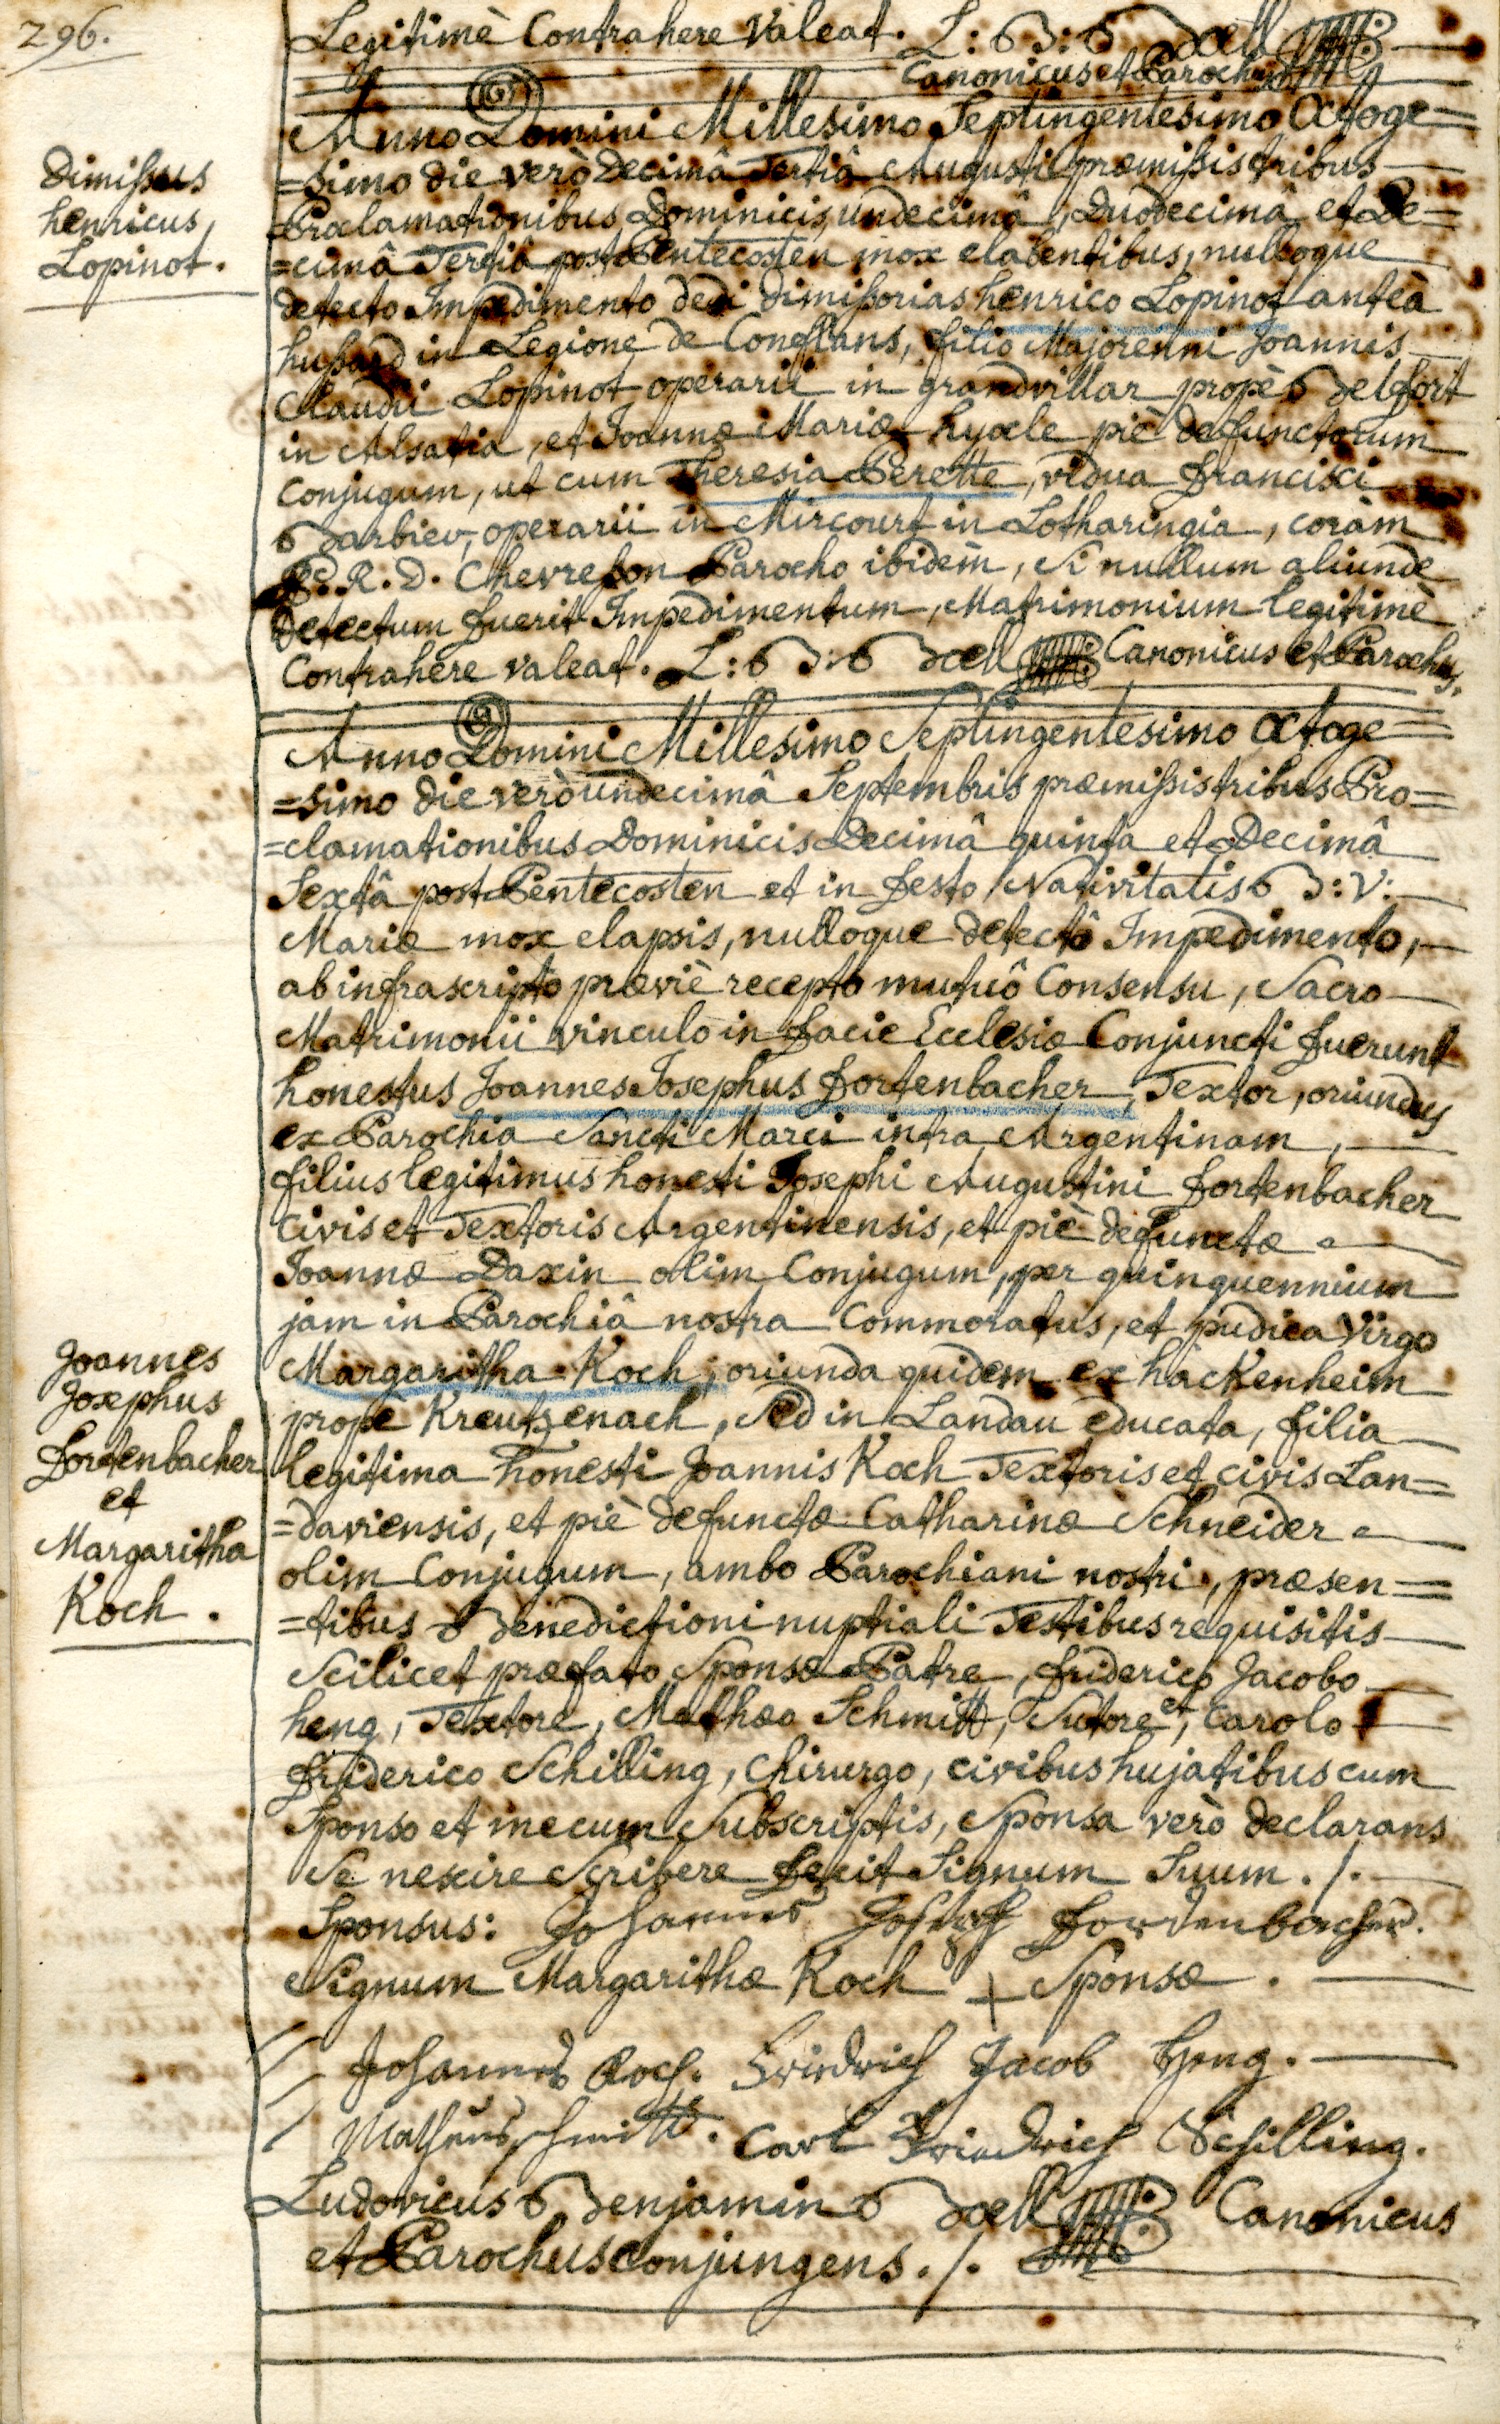 296.
Legitimè Contrahere Valeat. L: B: Boell
Canonicus et Parochus
Dimissus
henricus,
Lopinot.
Anno Domini Millesimo Septingentesimo Octoge=
=simo die verò Decimâ Tertiâ Augusti præmissis tribus
Proclamationibus Dominicis, undecimâ, Duodecimâ et De=
=cimâ Tertiâ post Pentecosten mox elabentibus, nulloque
detecto Impedimento dedi dimissorias henrico Lopinot anteà
hussard in Legione de Conflans, filio Majorenni Joannis
Claudii Lopinot operarii in grandvillar propè Belfort
in Alsatia, et Joannæ Mariæ hyocle piè defunctorum
Conjugum, ut cum Theresia Perette, vidua Francisci
Barbier, operarii in Mircourt in Lotharingia, coràm
R. D. Chevreson Parocho ibidem, Si nullum aliunde
Detectum fuerit Impedimentum, Matrimonium legitimè
Contrahere valeat. L: B: Boell Canonicus et Parochus.
Anno Domini Millesimo Septingentesimo Octoge=
=simo die verò undecimâ Septembris præmissis tribus Pro=
=clamationibus Dominicis Decimâ quinta et Decimâ
Sextâ post Pentecosten et in festo Nativitatis B: V:
Mariæ mox elapsis, nulloque detectô Impedimento,
ab infrascriptò præviè recepto mutuô Consensu, Sacro
Matrimonii vinculo in facie Ecclesiæ Conjuncti fuerunt
honestus Joannes Josephus Fortenbacher, Textor, oriundus
ex Parochia Sancti Marci intra Argentinam,
filius legitimus honesti Josephi Augustini Fortenbacher
Civis et Textoris Argentinensis, et piè defunctæ
Joannæ Daxin olim Conjugum, per quinquennium
jam in Parochiâ nostra Commoratus, et pudica Virgo
Joannes
Josephus
Fortenbacher
et
Margaritha
Koch.
Margaritha Koch, oriunda quidem ex hackenheim
propè Kreutzenach, Sed in Landau educata, filia
legitima honesti Joannis Koch Textoris et civis Lan=
=daviensis, et piè defunctæ Catharinæ Schneider
olim Conjugum, ambo Parochiani nostri, præsen=
=tibus Benedictioni nuptiali Testibus requisitis
Scilicet præfato Sponsæ Patre, friderico Jacobo
heng, Textore, Mathæo Schmitt, Sutore et, Carolo
friderico Schilling, Chirurgo, civibus hujatibus cum
Sponso et mecum Subscriptis, Sponsa verò declarans
Se nescire Scribere fecit Signum Suum ./.
Sponsus: Johannes Joseph Fordenbacher.
Signum Margarithæ Koch + Sponsæ.
Johannes Koch. Friedrich Jacob Heng.
Matheus Schmitt. Carl Friedrich Schilling.
Ludovicus Benjamin Boell Canonicus
et Parochus conjungens ./.